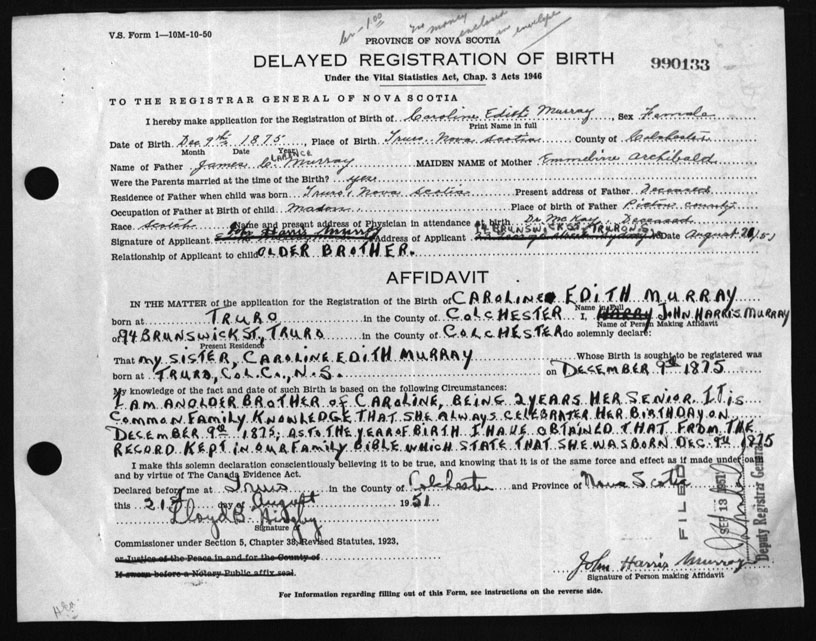 V.S. Form 1—10M-10-50
no money
enclosed
in envelope
PROVINCE OF NOVA SCOTIA
DELAYED REGISTRATION OF BIRTH
990133
Under the Vital Statistics Act, Chap. 3 Acts 1946
TO THE REGISTRAR GENERAL OF NOVA SCOTIA
I hereby make application for the Registration of Birth of Caroline Edith Murray, Sex Female
Print Name in full
Date of Birth Dec 9th 1875, Place of Birth Truro Nova Scotia County of Colchester
Month Date Year
CLARENCE
Name of Father James C. Murray MAIDEN NAME of Mother Emmeline Archibald
Were the Parents married at the time of the Birth? yes
Residence of Father when child was born Truro, Nova Scotia Present address of Father Deceased
Occupation of Father at Birth of child Mason Place of birth of Father Pictou County
Race Scotch Name and present address of Physician in attendance at birth Dr. McKay, Deceased
94 BRUNSWICK ST. TRURO N.S.
Signature of Applicant Harris Murray Address of Applicant Date August 21/51
Relationship of Applicant to child OLDER BROTHER.
AFFIDAVIT
IN THE MATTER of the application for the Registration of the Birth of CAROLINE EDITH MURRAY
Name in Full
born at TRURO in the County of COLCHESTER I, HARRY JOHN HARRIS MURRAY
Name of Person Making Affidavit
of 94 BRUNSWICK ST., TRURO in the County of COLCHESTER do solemnly declare:
Present Residence
That MY SISTER, CAROLINE EDITH MURRAY Whose Birth is sought to be registered was
born at TRURO, COL. CO., N.S. on DECEMBER 9th 1875
My knowledge of the fact and date of such Birth is based on the following Circumstances:
I AM AN OLDER BROTHER OF CAROLINE, BEING 2 YEARS HER SENIOR. IT IS
COMMON FAMILY KNOWLEDGE THAT SHE ALWAYS CELEBRATED HER BIRTHDAY ON
DECEMBER 9th 1875; AS TO THE YEAR OF BIRTH I HAVE OBTAINED THAT FROM THE
RECORD KEPT IN OUR FAMILY BIBLE WHICH STATE THAT SHE WAS BORN DEC. 9th, 1875
I make this solemn declaration conscientiously believing it to be true, and knowing that it is of the same force and effect as if made under oath
and by virtue of The Canada Evidence Act.
Declared before me at Truro in the County of Colchester and Province of Nova Scotia
this 21st day of August 1951
Lloyd B.
Signature of
Commissioner under Section 5, Chapter 38, Revised Statutes, 1923,
or Justice of the Peace in and for the County of
If sworn before a Notary Public affix seal
FILED
SEP 13 1951
Deputy Registrar General
John Harris Murray
Signature of Person making Affidavit
For Information regarding filling out of this Form, see instructions on the reverse side.